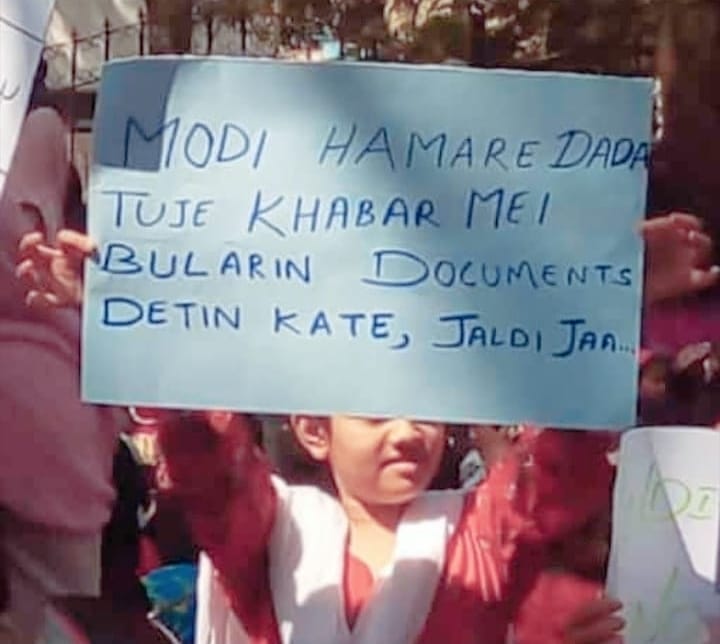 MODI HAMARE DADA
TUJE KHABAR MEI
BULARIN DOCUMENTS
DETIN KATE, JALDI JAA...
DI